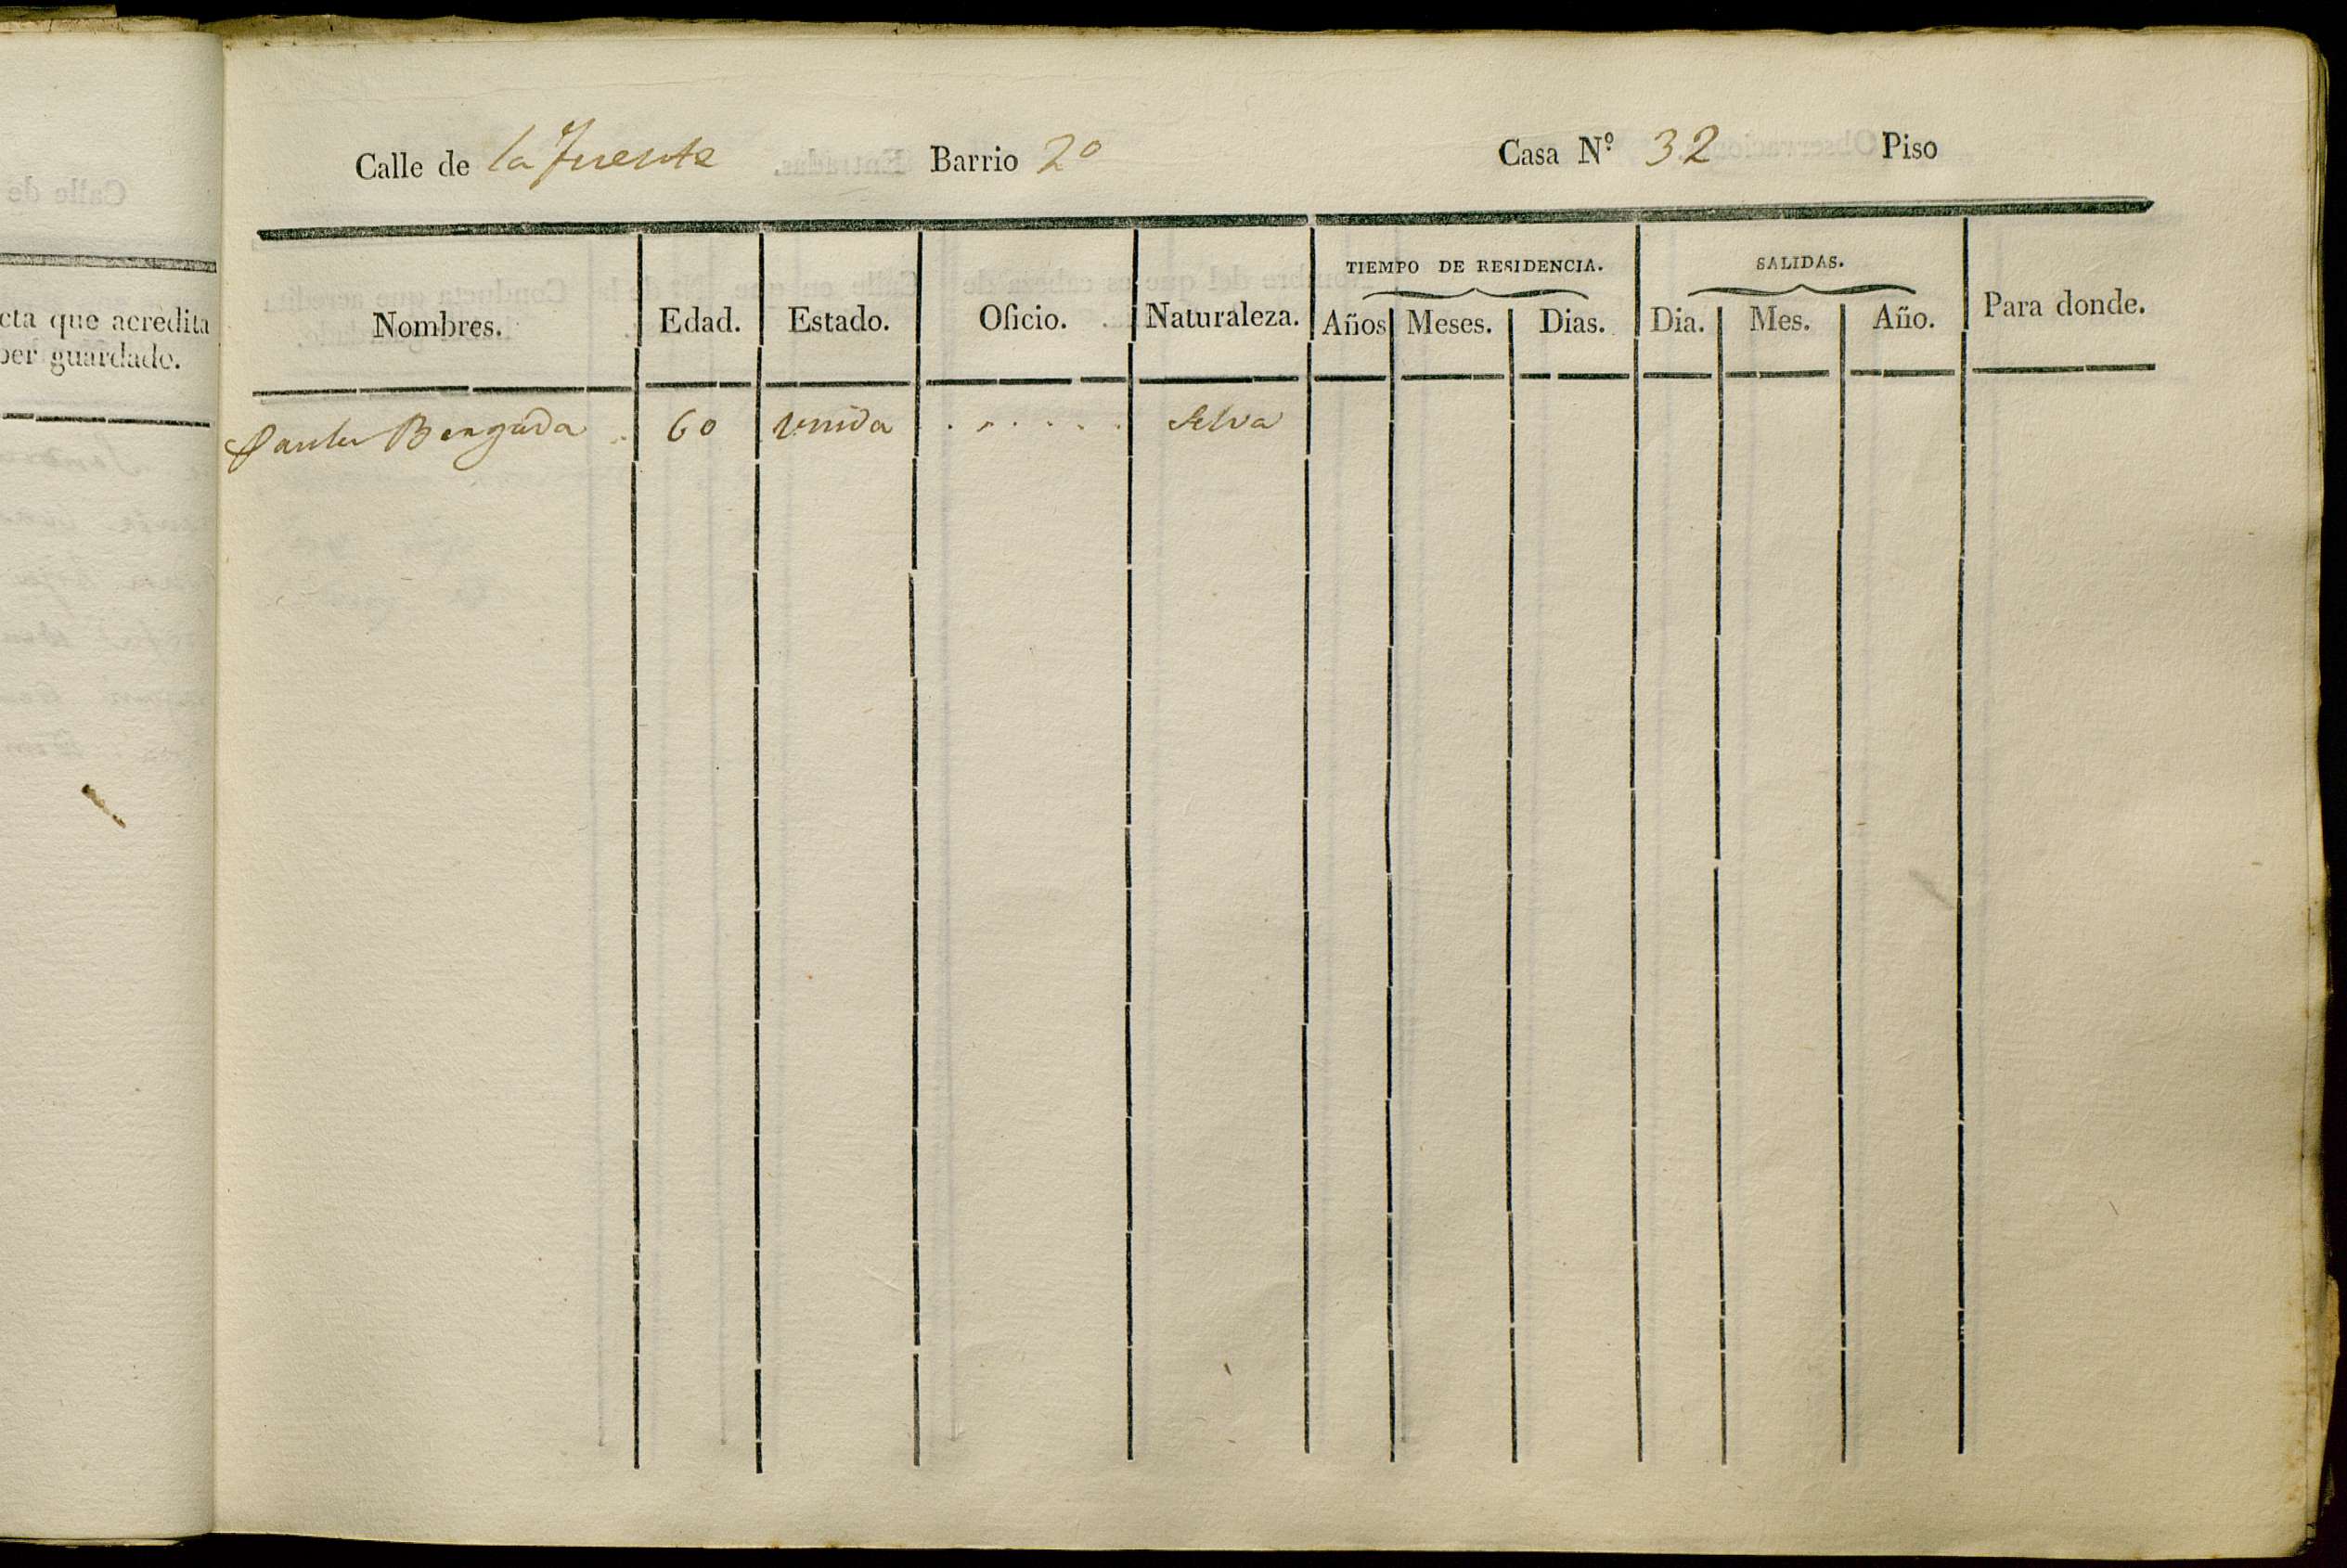 Calle de la fuente Barrio 2º Casa Nº 32 Piso
Nombres. Edad. Estado. Oficio. Naturaleza. TIEMPO DE RESIDENCIA. Años Meses. Dias. SALIDAS. Dia. Mes. Año. Para donde.
Benguda . 60 viuda . . . . . . Selva
Calle de
cta que acredita
ber guardado.